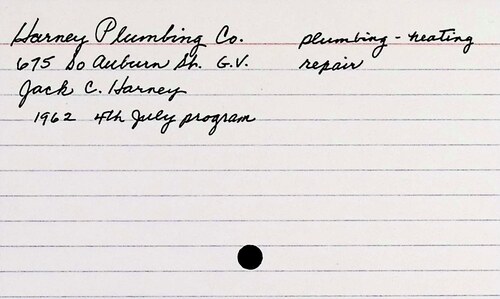 Harney Plumbing Co. plumbing - heating
675 So Auburn St. G.V. repair
Jack C. Harney
1962 4th July program